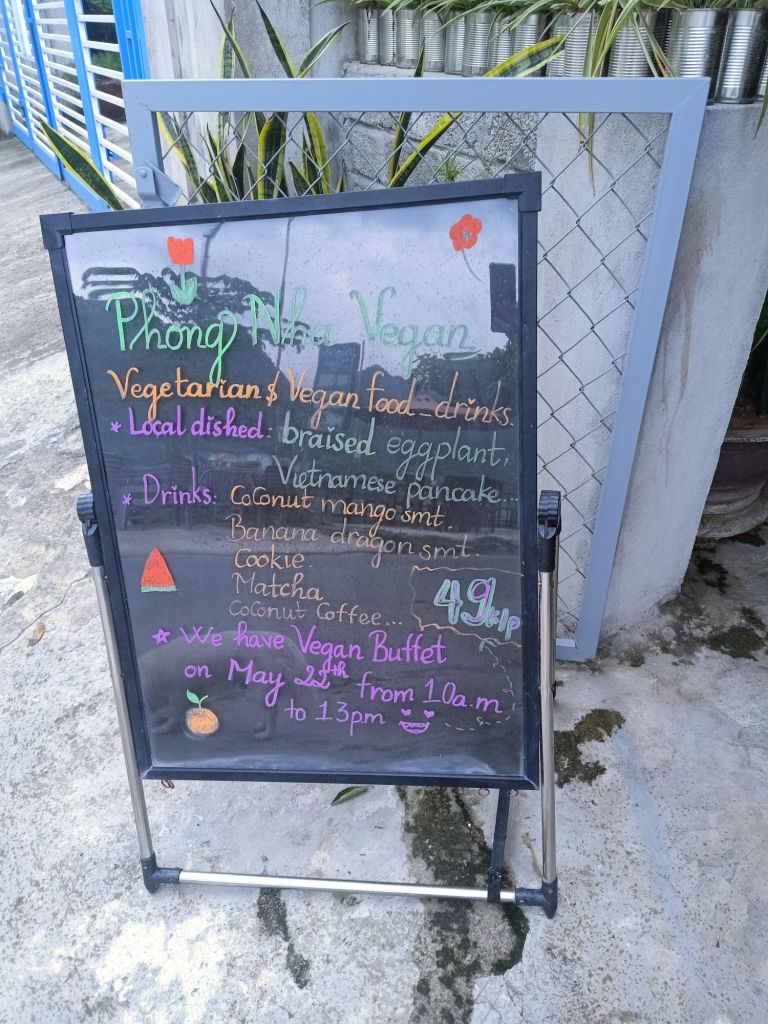 Phong Nha Vegan
Vegetarian & Vegan food_drinks.
* Local dished: braised eggplant,
Vietnamese pancake...
* Drinks: Coconut mango smt.
Banana dragon smt.
Cookie.
Matcha
Coconut Coffee...
49k/p
* We have Vegan Buffet
on May 22th from 10a.m
to 13pm